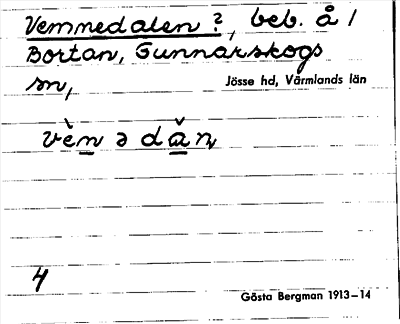 Vemmedalen?, beb. å /
Bortan, Gunnarskogs
sn,
Jösse hd, Värmlands län
vèn ə dǎn,
4
Gösta Bergman 1913–14